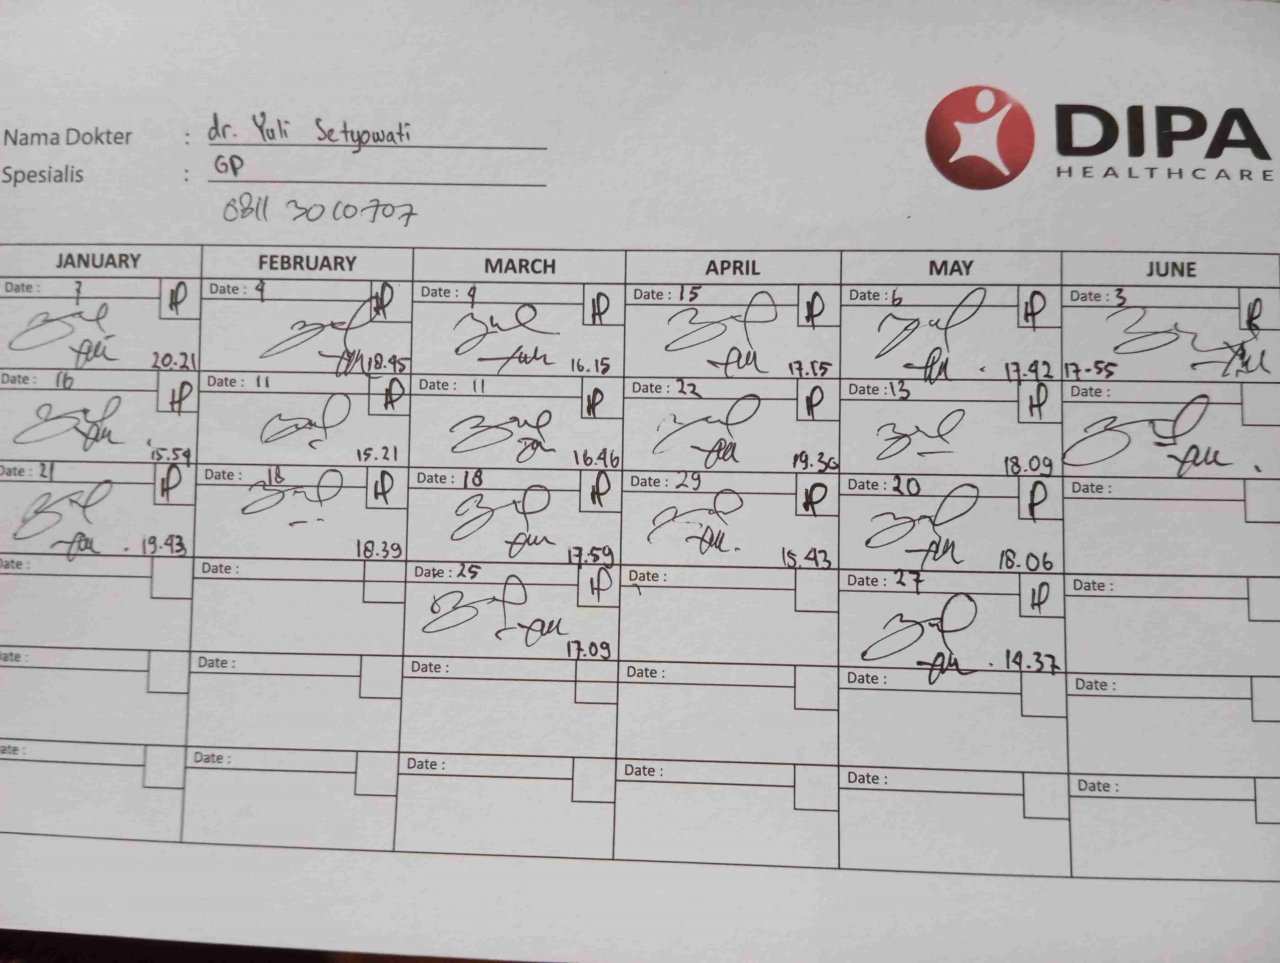 DIPA
HEALTHCARE
Nama Dokter : dr. Yuli Setyowati
Spesialis : GP
0811 3010707
JANUARY FEBRUARY MARCH APRIL MAY JUNE
Date : 7 Date : 4 Date : 4 Date : 15 Date : 6 Date : 3
20.21 18.45 16.15 17.15 17.42 17-55
Date : 16 Date : 11 Date : 11 Date : 22 Date : 13
15.54 15.21 16.46 19.30 18.09
Date : 21 Date : 18 Date : 18 Date : 29 Date : 20 Date :
19.43 18.39 17.59 15.43 18.06
Date : Date : Date : 25 Date : Date : 27 Date :
17.09 14.37
ate : Date : Date : Date : Date : Date :
ate : Date : Date : Date : Date : Date :